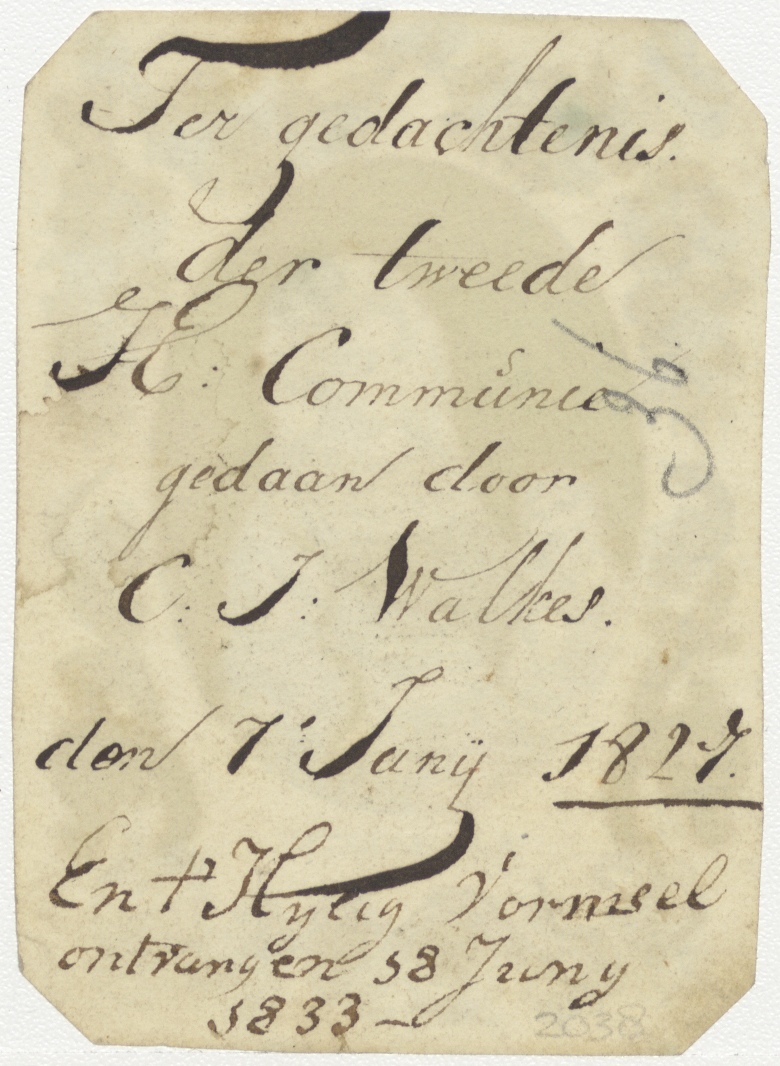 Ter gedachtenis.
der tweede
H: Communie
gedaan door
C: J: Walkes.
den 7' Juny 1827.
En t Hylig Vormsel
ontvangen 18 Juny
1833 –
2038